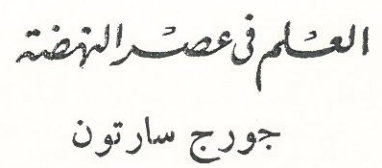 العلم فى عصر النهضة
جورج سارتون